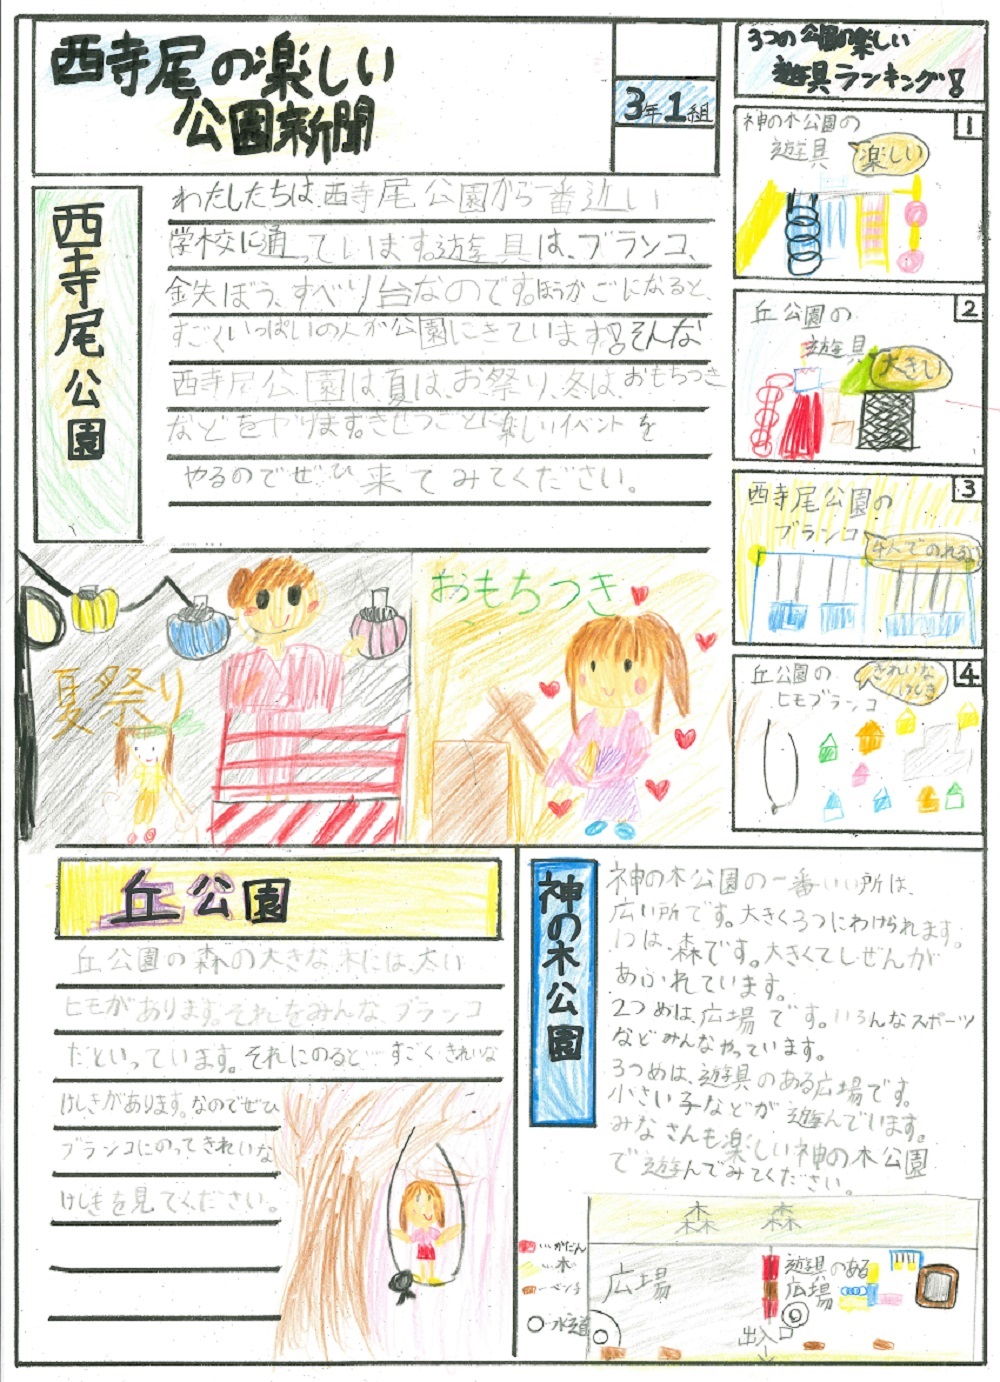 西寺尾の楽しい
公園新聞
3年1組
西寺尾公園
わたしたちは、西寺尾公園から一番近い
学校に通っています。遊具は、ブランコ、
鉄ぼう、すべり台なのです。ほうかごになると、
すごくいっぱいの人が公園にきています。そんな
西寺尾公園は夏は、お祭り、冬は、おもちつき
などをやります。きせつごとに楽しいイベントを
やるのでぜひ来てみてください。
夏祭り
おもちつき
3つの公園の楽しい
遊具ランキング!
1
神の木公園の
遊具
楽しい
2
丘公園の
遊具
大きい
3
西寺尾公園の
ブランコ
4人でのれる
4
丘公園の
ヒモブランコ
きれいな
けしき
丘公園
丘公園の森の大きな木には、太い
ヒモがあります。それをみんな、ブランコ
だといっています。それにのると…すごくきれいな
けしきがあります。なのでぜひ
ブランコにのってきれいな
けしきを見てください。
神の木公園
神の木公園の一番いい所は、
広い所です。大きく3つにわけられます。
1つは、森です。大きくてしぜんが
あふれています。
2つめは、広場です。いろんなスポーツ
などみんなやっています。
3つめは、遊具のある広場です。
小さい子などが遊んでいます。
みなさんも楽しい神の木公園
で遊んでみてください。
森 森
広場
遊具のある
広場
出入口
…かだん
…木
…ベンチ
…水道